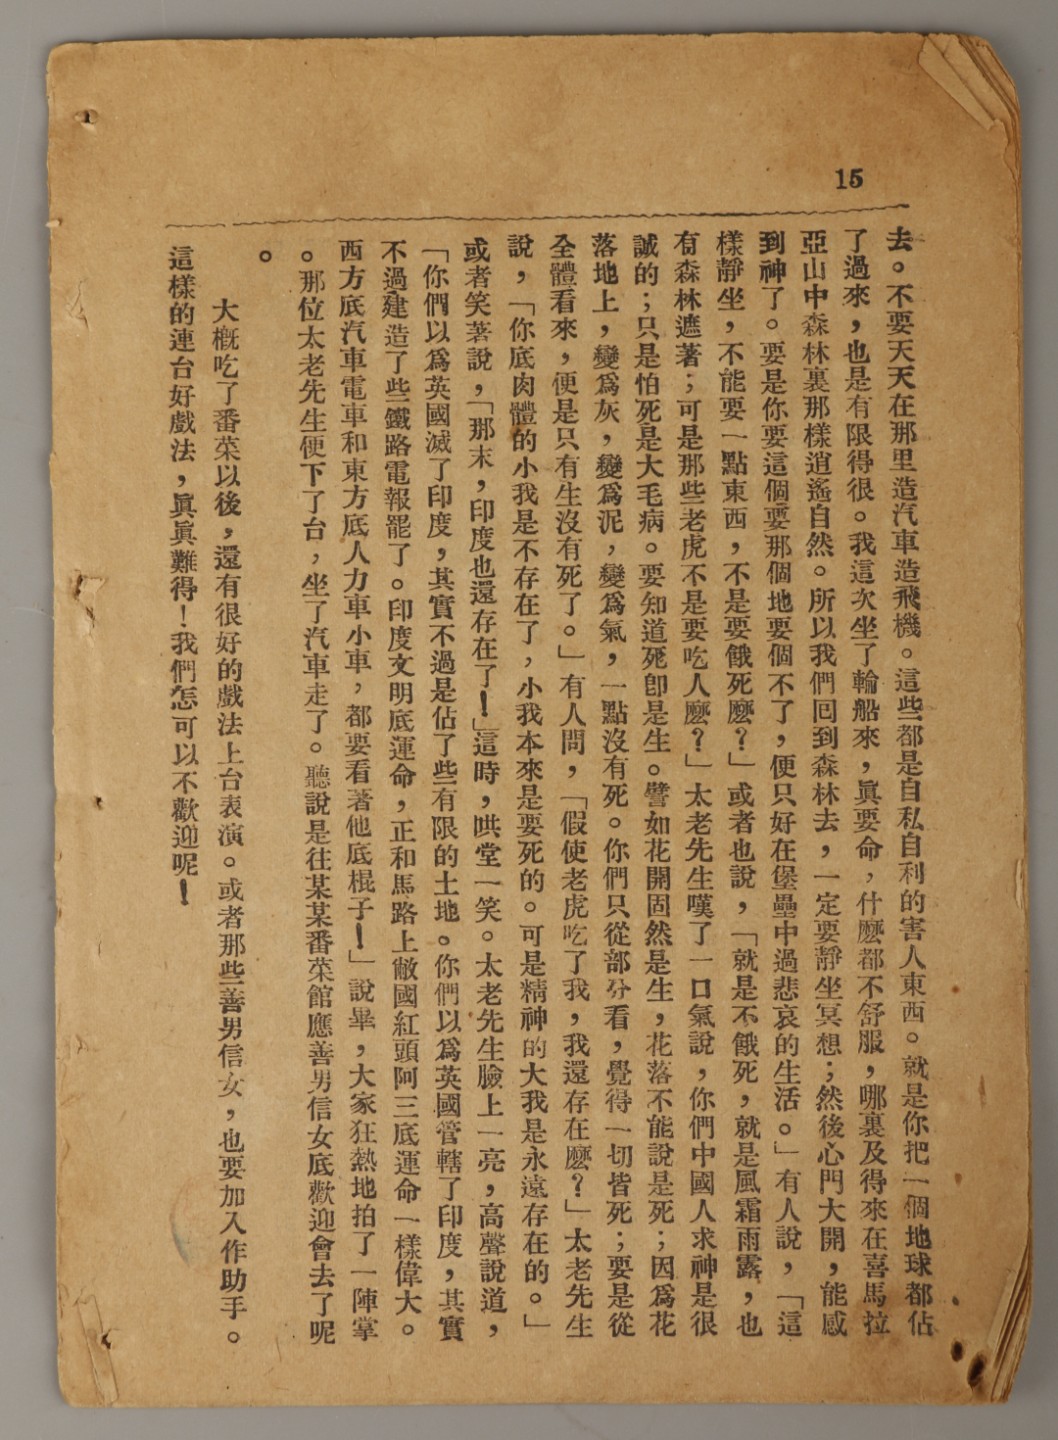 15
去。不要天天在那里造汽車造飛機。這些都是自私自利的害人東西。就是你把一個地球都佔
了過來，也是有限得很。我這次坐了輪船來，眞要命，什麼都不舒服，哪裏及得來在喜馬拉
亞山中森林裏那樣逍遙自然。所以我們回到森林去，一定要靜坐冥想；然後心門大開，能感
到神了。要是你要這個要那個地要個不了，便只好在堡壘中過悲哀的生活。」有人說，「這
樣靜坐，不能要一點東西，不是要餓死麼？」或者也說，「就是不餓死，就是風霜雨露，也
有森林遮著；可是那些老虎不是要吃人麼？」太老先生嘆了一口氣說，你們中國人求神是很
誠的；只是怕死是大毛病。要知道死卽是生。譬如花開固然是生，花落不能說是死；因爲花
落地上，變爲灰，變爲泥，變爲氣，一點沒有死。你們只從部分看，覺得一切皆死；要是從
全體看來，便是只有生沒有死了。」有人問，「假使老虎吃了我，我還存在麼？」太老先生
說，「你底肉體的小我是不存在了，小我本來是要死的。可是精神的大我是永遠存在的。」
或者笑著說，「那末，印度也還存在了！」這時，哄堂一笑。太老先生臉上一亮，高聲說道，
「你們以爲英國滅了印度，其實不過是佔了些有限的土地。你們以爲英國管轄了印度，其實
不過建造了些鐵路電報罷了。印度文明底運命，正和馬路上敝國紅頭阿三底運命一樣偉大。
西方底汽車電車和東方底人力車小車，都要看著他底棍子！」說畢，大家狂熱地拍了一陣掌
。那位太老先生便下了台，坐了汽車走了。聽說是往某某番菜館應善男信女底歡迎會去了呢
。
大概吃了番菜以後，還有很好的戲法上台表演。或者那些善男信女，也要加入作助手。
這樣的連台好戲法，眞眞難得！我們怎可以不歡迎呢！